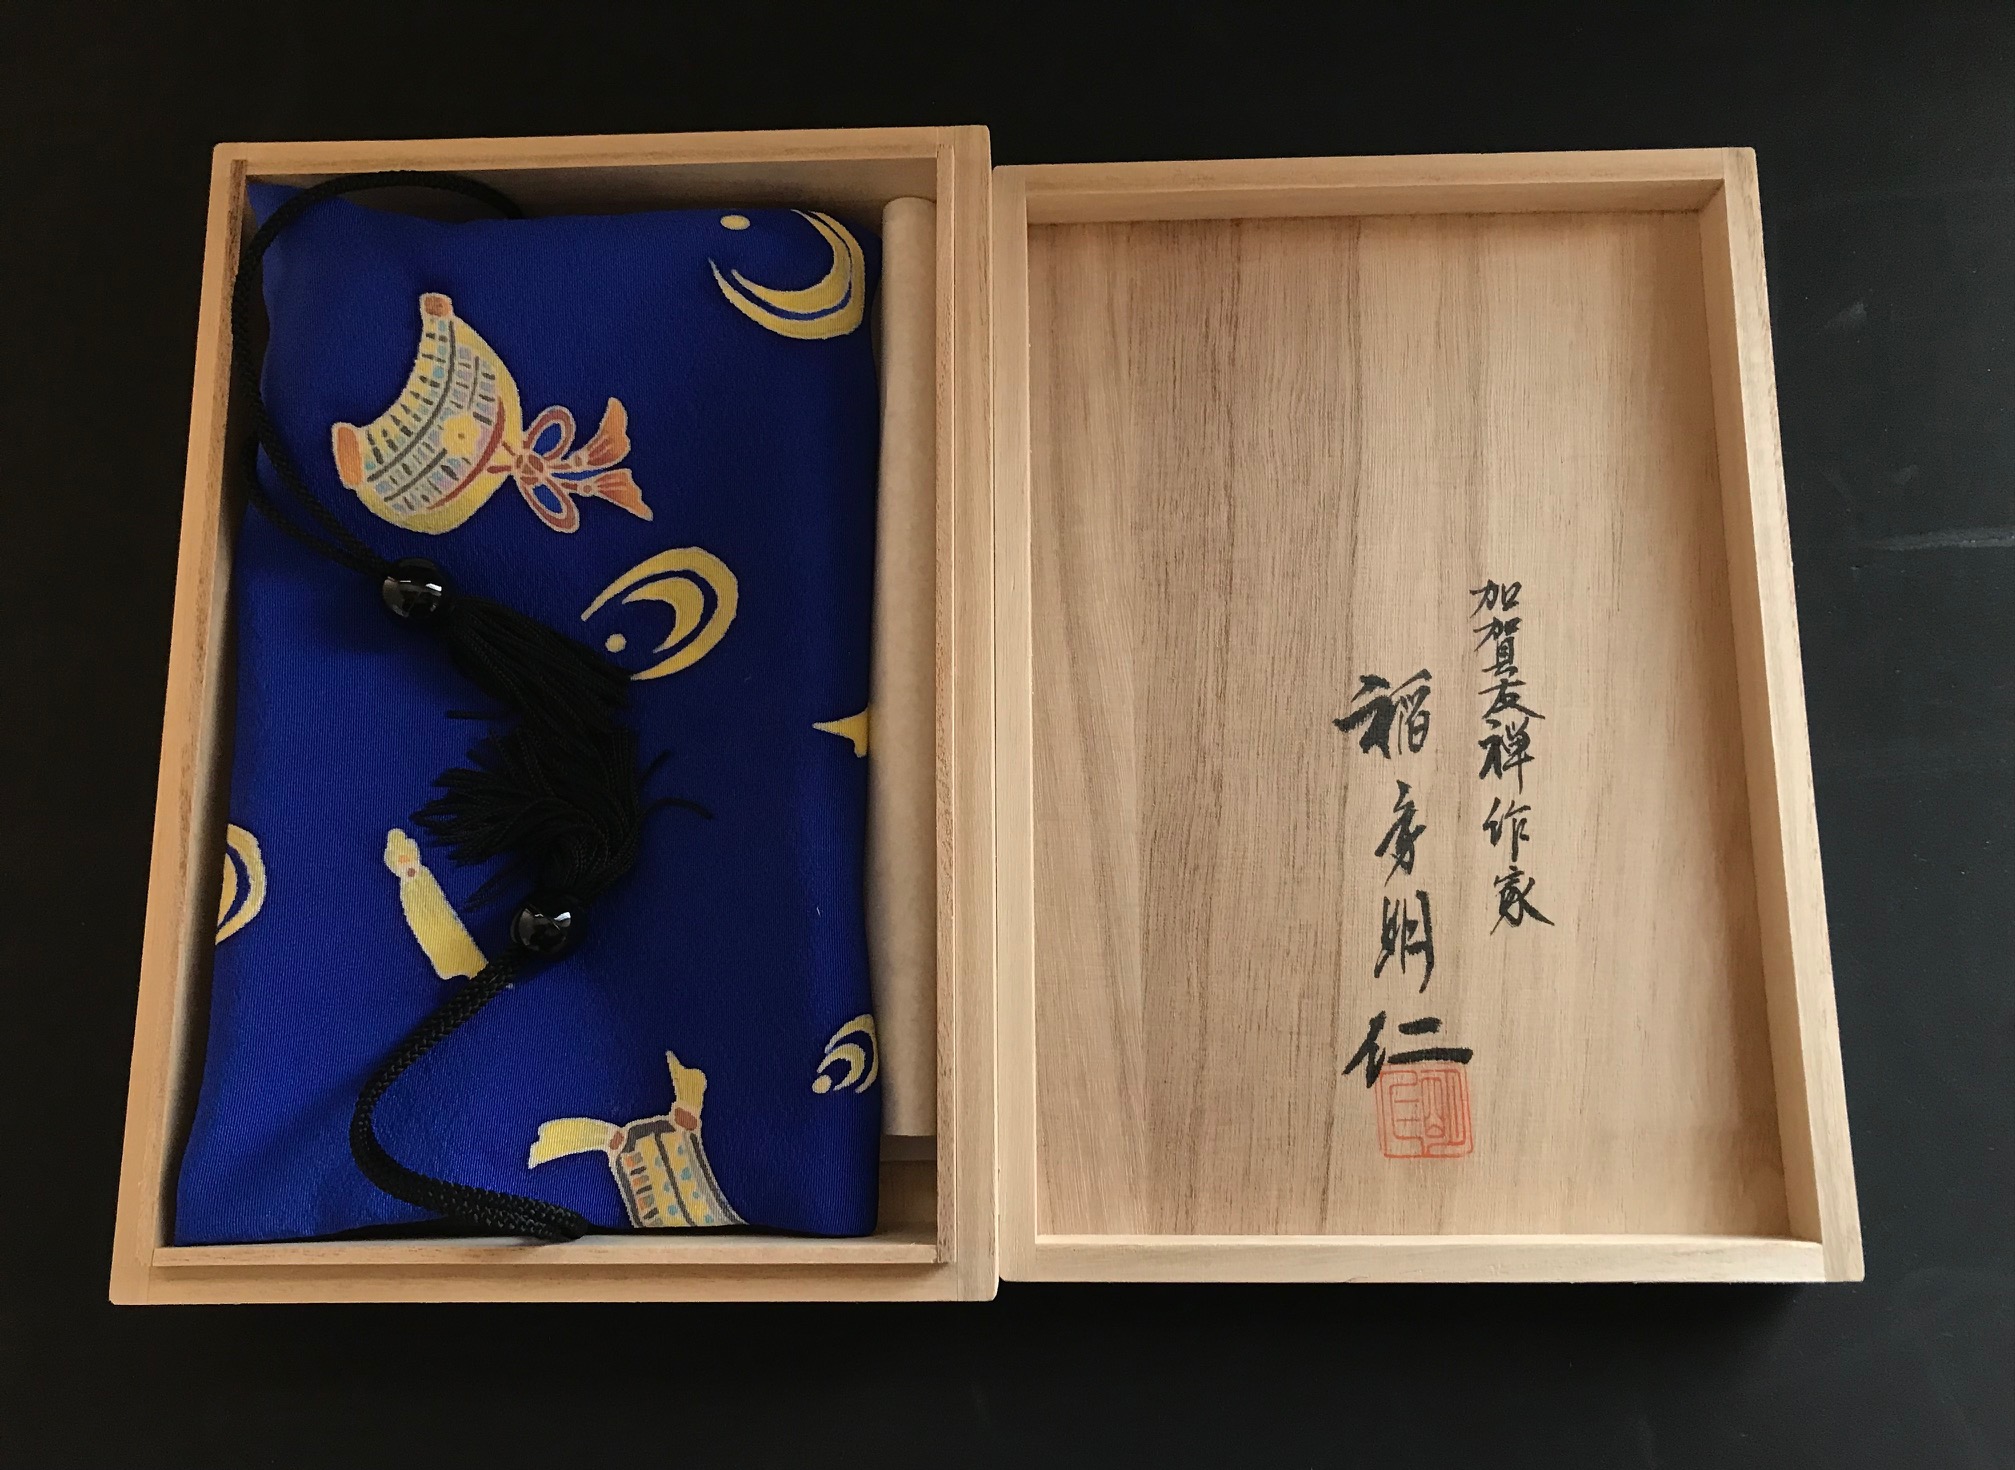 加賀友禅作家
稲房明仁